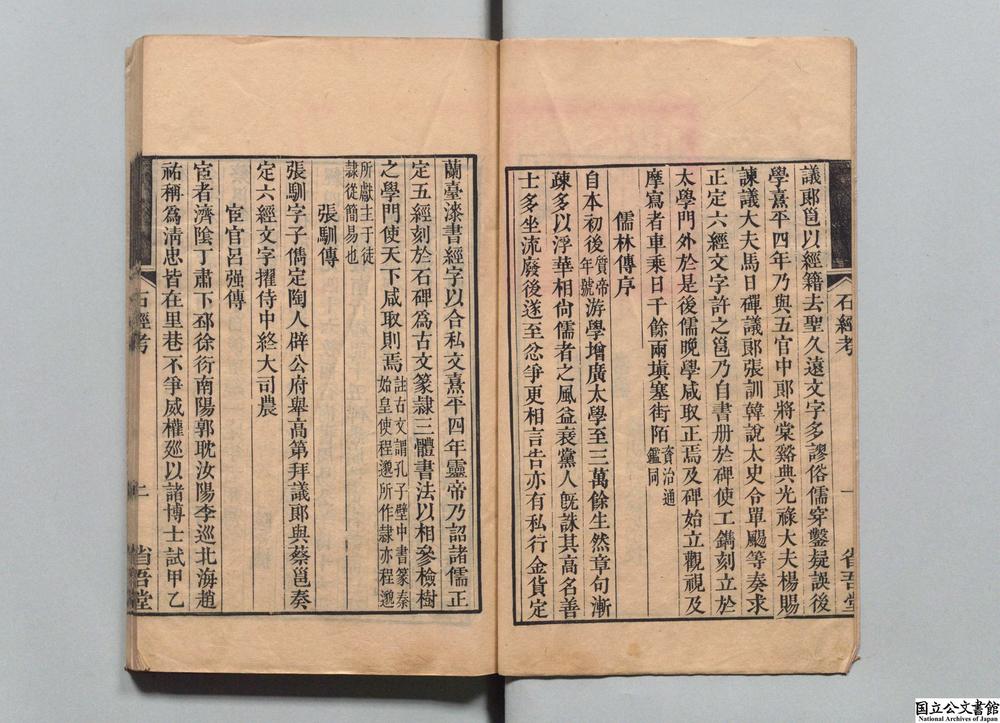 議郞邕以經籍去聖久遠文字多謬俗儒穿鑿疑誤後
學熹平四年乃與五官中郞將棠谿典光祿大夫楊賜
諫議大夫馬日磾議郞張訓韓說太史令單颺等奏求
正定六經文字許之邕乃自書册於碑使工鐫刻立於
太學門外於是後儒晚學咸取正焉及碑始立觀視及
摩寫者車乘日千餘兩塡塞街陌資治通
鑑同
儒林傳序
自本初後質帝
年號游學增廣太學至三萬餘生然章句漸
疎多以浮華相尙儒者之風益衰黨人旣誅其高名善
士多坐流廢後遂至忿爭更相言告亦有私行金貨定
石經考
一
省吾堂
蘭臺漆書經字以合私文熹平四年靈帝乃詔諸儒正
定五經刻於石碑爲古文篆隷三體書法以相參檢樹
之學門使天下咸取則焉註古文謂孔子壁中書篆秦
始皇使程邈所作隷亦程邈
所獻主于徒
隷從簡易也
張馴傳
張馴字子儁定陶人辟公府舉高第拜議郞與蔡邕奏
定六經文字擢侍中終大司農
宦官呂强傳
宦者濟陰丁肅下邳徐衍南陽郭耽汝陽李巡北海趙
祐稱爲淸忠皆在里巷不爭威權廵以諸博士試甲乙
石經考
二
省吾堂
国立公文書館
National Archives of Japan